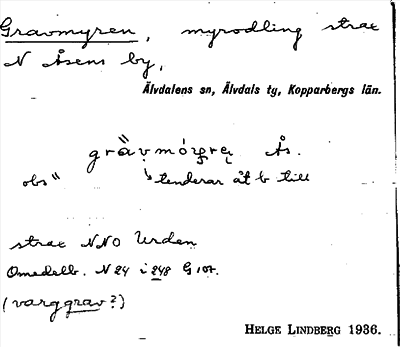 Gravmyren, myrodling strax
N Åsens by,
Älvdalens sn, Älvdals ty, Kopparbergs län.
Ås.
obs" tenderar åt b till
strax NNO Urden
Omedelb. N 24 i 248 G 107.
(varggrav?)
HELGE LINDBERG 1936.